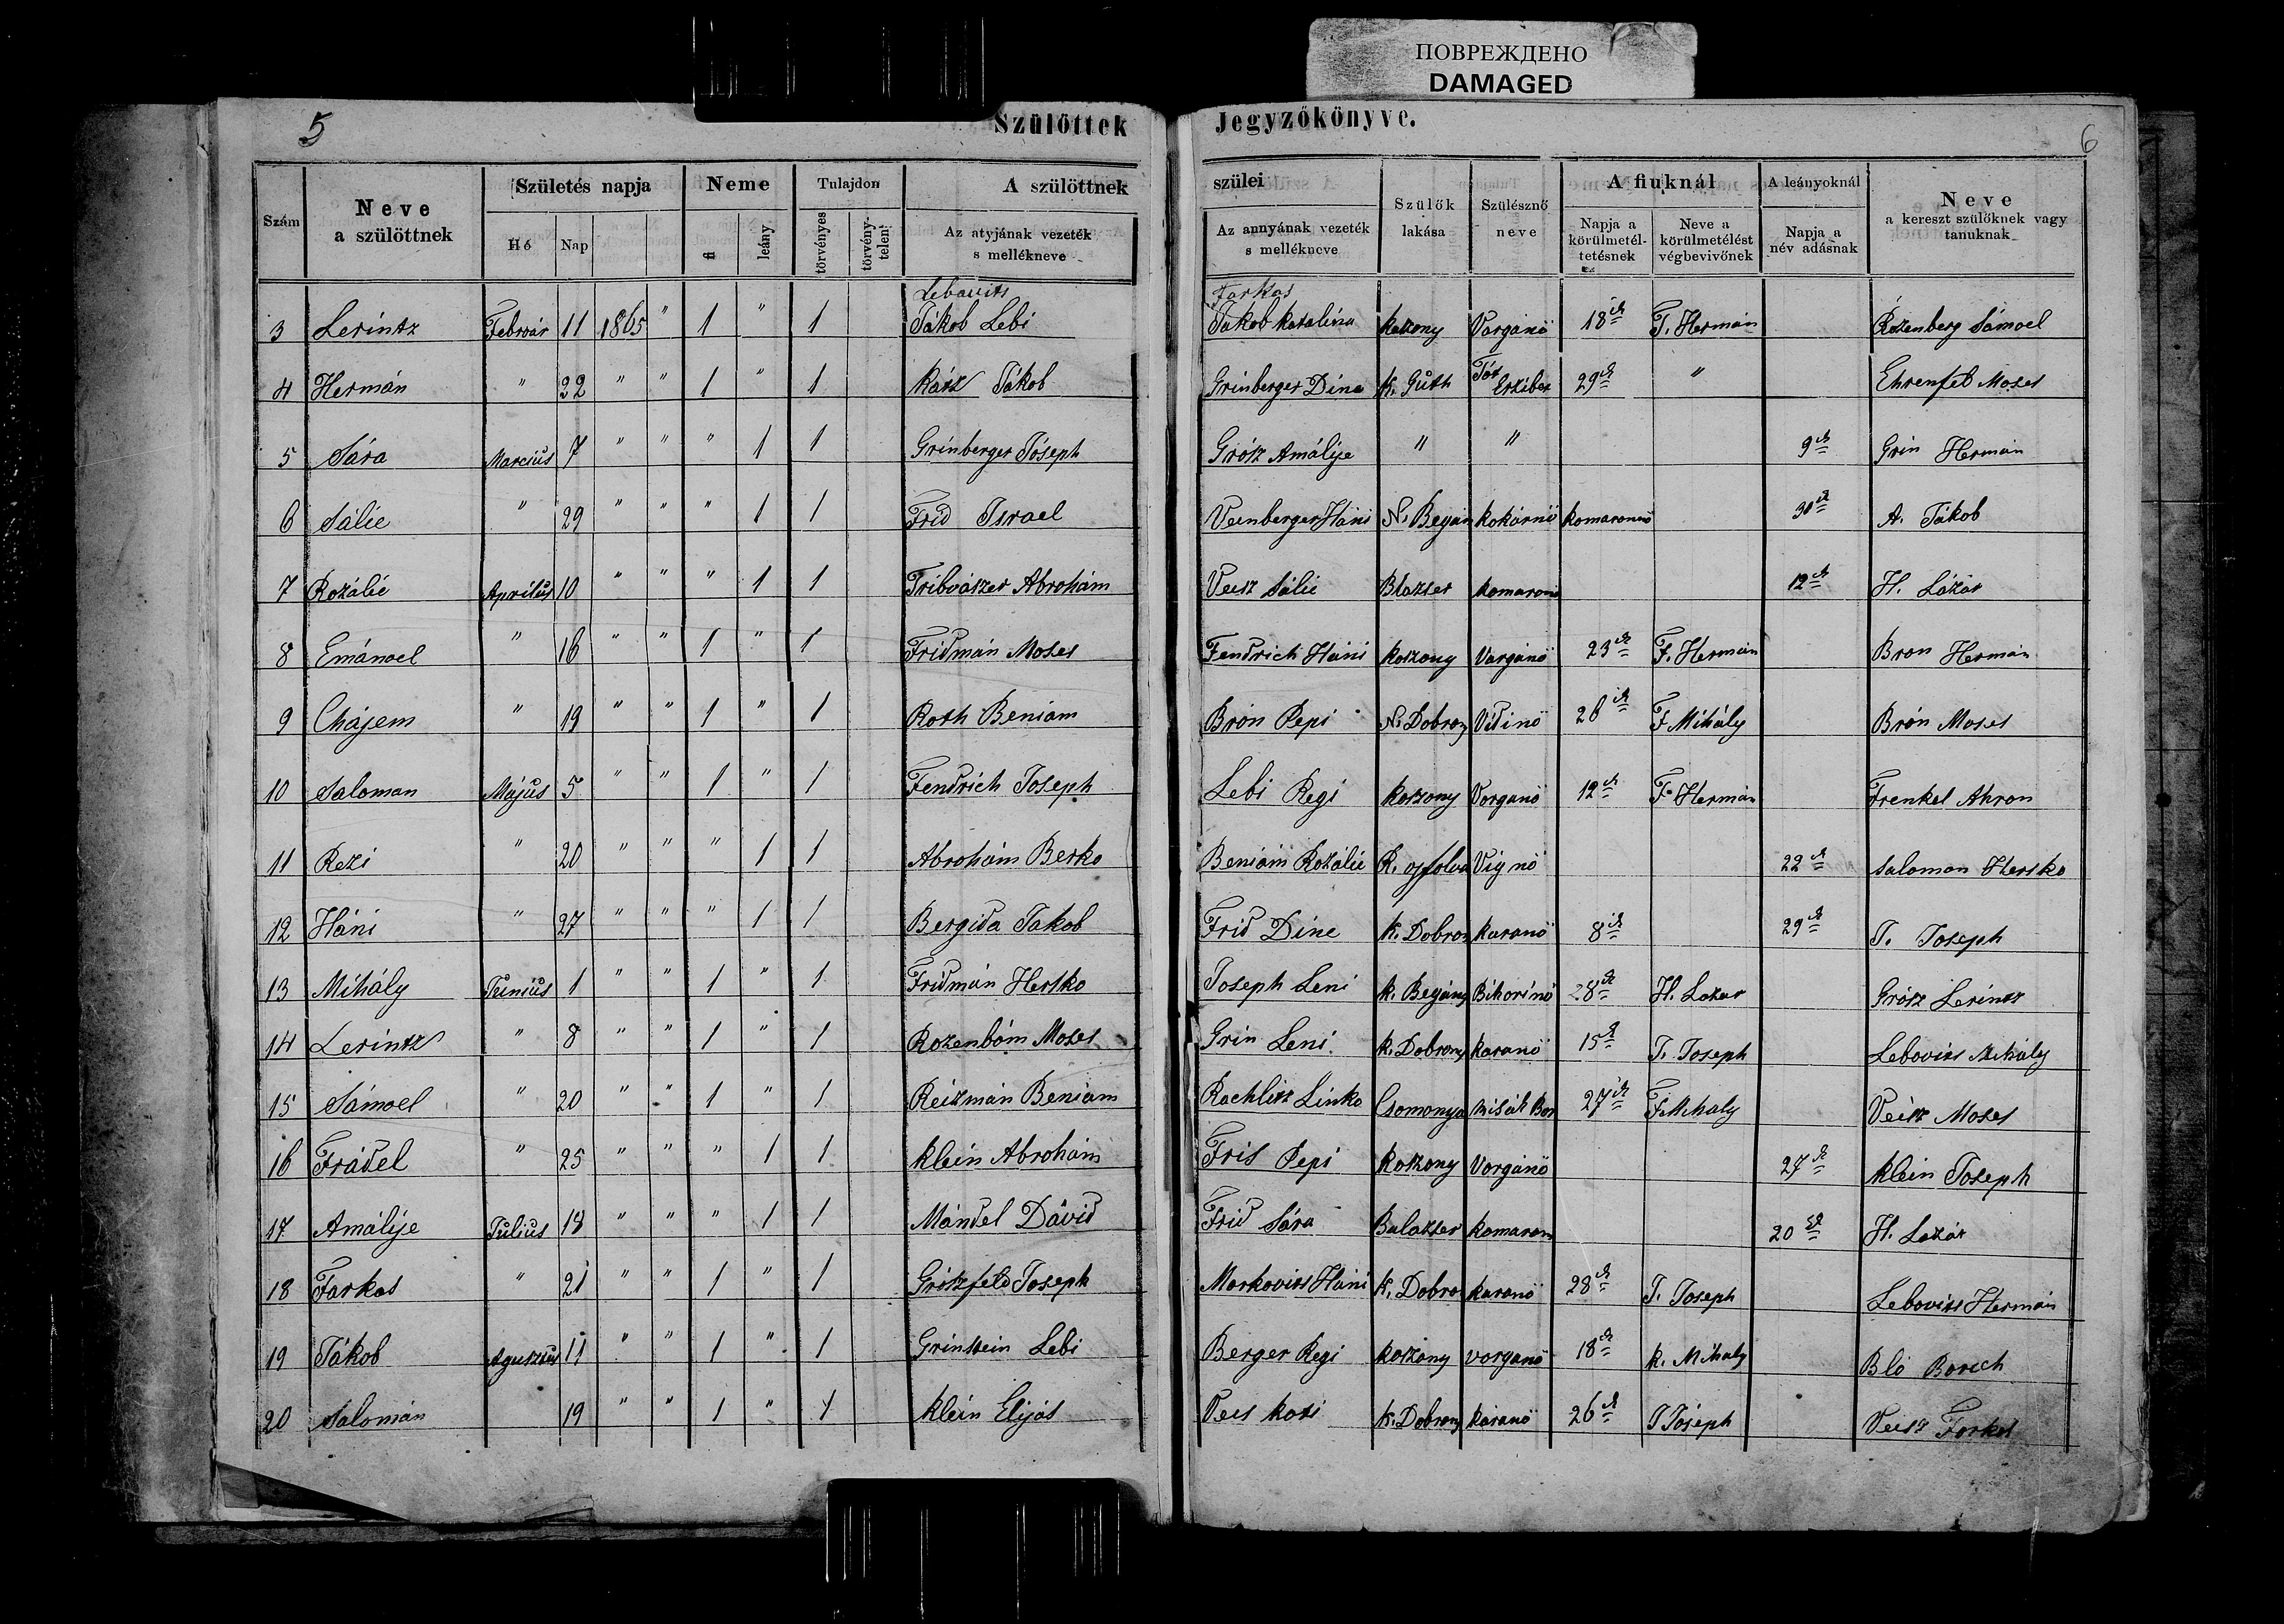 ПОВРЕЖДЕНО
DAMAGED
5 Szülöttek Jegyzőkönyve. 6
Szám Neve a szülöttnek Születés napja Hó Nap Neme fi leány Tulajdon törvényes törvénytelen A szülöttnek Az atyjának vezeték s mellékneve szülei Az annyának vezeték s mellékneve Szülők lakása Szülésznő neve A fiuknál Napja a körülmetéltetésnek Neve a körülmetélést végbevivőnek A leányoknál Napja a név adásnak Neve a kereszt szülőknek vagy tanuknak
Lebovits Farkas
3 Lerintz Február 11 1865 " 1 " 1 Jákob Lebi Jakob Katalina Kaszony Varganö 18ik F. Hermán Rozenberg Sámoel
4 Hermán " 22 " " 1 " 1 Kátz Jákob Grinberger Dina K. Guth Tót Erzibet 29ik " Ehrenfeb Moses
5 Sára Marcius 7 " " " 1 1 Grinberger Jóseph Grósz Amálije " " 9ik Grin Hermán
6 Sálie " 29 " " " 1 1 Frid Israel Veinberger Háni N. Begán Kokárnö Komaromnö 30ik A. Jákob
7 Rozálie Aprilus 10 " " " 1 1 Tribvászer Abrohám Veisz Sálie Blazser Komaronö 12ik H. Lázár
8 Emánoel " 16 " " 1 " 1 Fridmán Moses Fendrich Háni Koszony Vargánö 23ik F. Hermán Bron Hermán
9 Chájem " 19 " " 1 " 1 Roth Beniam Brón Pepi N. Dobrony Vidinö 26ik F. Mihály Brón Moses
10 Saloman Május 5 " " 1 " 1 Fendrich Joseph Lebi Regi Koszony Vorganö 12ik F. Hermán Frenkel Ahron
11 Rezi " 20 " " " 1 1 Abrohám Berko Beniám Rozálie Vig nö 22ik Saloman Hersko
12 Háni " 27 " " " 1 1 Bergida Jakob Frid Dine K. Dobron Karanö 8ik 29ik J. Joseph
13 Mihály Junius 1 " " 1 " 1 Fridmán Hersko Joseph Leni K. Begány Bihorinö 28ik H. Lozar Grósz Lerintz
14 Lerintz " 8 " " 1 " 1 Rozenbóm Moses Grin Leni K. Dobrony Karanö 15ik J. Joseph Lebovits Mihály
15 Sámoel " 20 " " 1 " 1 Reizmán Beniam Rachlisz Linko Csomonya 27ik F. Mihaly Veisz Moses
16 Frádel " 25 " " " 1 1 Klein Abrohám Fris Pepi Koszony Vorgánö 27ik Klein Joseph
17 Amálije Julius 18 " " " 1 1 Mándel Dávid Frid Sára Balazser Komaron 20ik H. Lozár
18 Farkas " 21 " " 1 " 1 Grószfeld Joseph Markovits Háni K. Dobro Karanö 28ik J. Joseph Lebovits Hermán
19 Jákob Aguszus 11 " " 1 " 1 Grinstein Lebi Berger Regi Koszony Vorganö 18ik K. Mihaly Bló Borich
20 Salomán 19 " " 1 " 1 Klein Elijás Veis Kati K. Dobrony Karanö 26ik J Jóseph Veisz Forkas